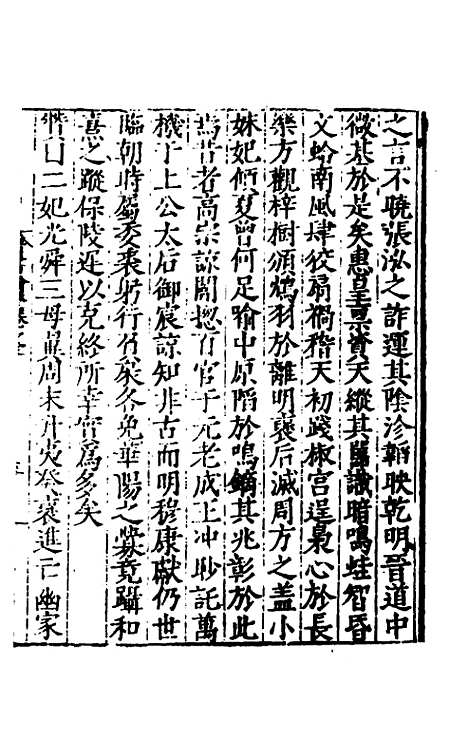 之言不曉張泓之詐運其陰沴韜映乾明晉道中
微基於是矣惠皇稟質天縱其嚚識暗鳴蛙智昏
文蛤南風肆狡扇禍稽天初踐椒宮逞梟心於長
樂方觀梓樹頒鴆羽於離明褒后滅周方之蓋小
妹妃傾夏曾何足喻中原陷於鳴鏑其兆彰於此
焉昔者高宗諒闇揔百官于元老成王冲眇託萬
機于上公太后御宸諒知非古而明穆康獻仍世
臨朝時屬委裘躬行負扆各免華陽之釁竟躡和
熹之蹤保陵遲以克終所幸實爲多矣
賛曰二妃光舜三母翼周末升夷癸褒進亡幽家